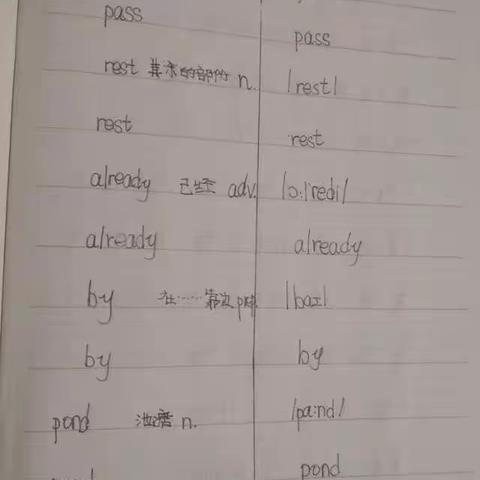 pass
pass
rest 其余的部分 n. /rest/
rest rest
already 已经 adv. /ɔ:l'redi/
already already
by 在…… 旁边 prep. /baɪ/
by by
pond 池塘 n. /pa:nd/
pond